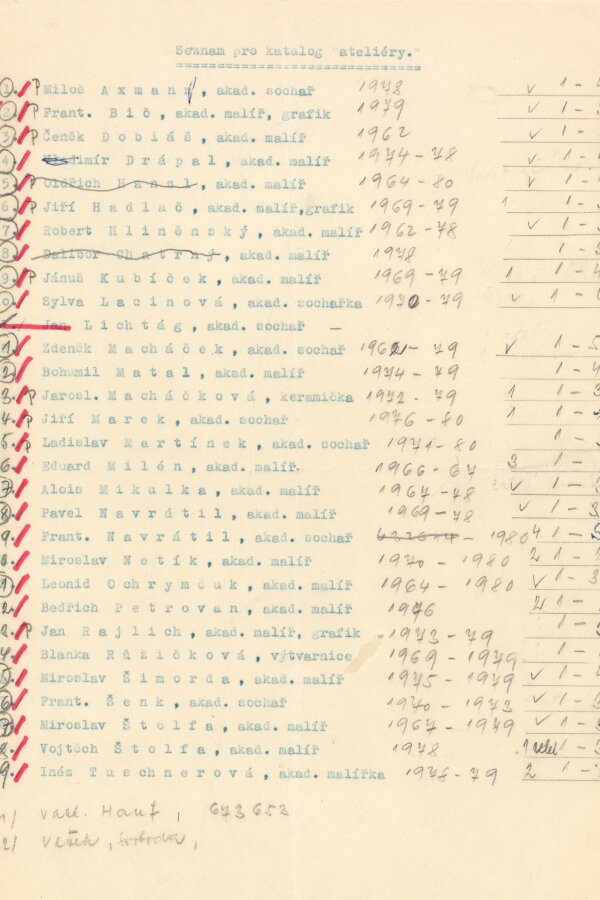 Seznam pro katalog "ateliéry."
1. P Miloš Axmann, akad. sochař 1978 v 1 -
2. P Frant. Bič, akad. malíř, grafik 1979 v 1 -
3. P Čeněk Dobiáč, akad. malíř 1962 v 1 -
4. Vladimír Drápal, akad. malíř 1974-78 v 1 -
5. P Oldřich Hanzl, akad. malíř 1964-80 v 1 -
6. P Jiří Hadlač, akad. malíř,grafik 1969-79 1 1 -
7. Robert Hliněnský, akad. malíř 1962-78 v 1 -
8. Dalibor Chatrný, akad. malíř 1978 1 -
9. P Jánuš Kubíček, akad. malíř 1969-79 1 1 - 4
0. Sylva Lacinová, akad. sochařka 1970-79 v 1 -
Jan Lichtág, akad. sochař -
1. Zdeněk Macháček, akad. sochař 1962-79 v 1 - 5
2. Bohumil Matal, akad. malíř 1974-79 1 - 4
3. P Jarosl. Macháčková, keramička 1972-79 1 1 - 3
4. P Jiří Marek, akad. sochař 1976-80 1 1 -
5. P Ladislav Martínek, akad. sochař 1971-80 1 -
6. Eduard Milén, akad. malíř 1966-67 3 1 -
7. Alois Mikulka, akad. malíř 1967-78 v 1 - 3
8. Pavel Navrátil, akad. malíř 1969-78 v 1 - 3
9. Frant. Navrátil, akad. sochař - 1980 4 1 -
Miroslav Netík, akad. malíř 1970 - 1980 2 1 -
1) Leonid Ochrymčuk, akad. malíř 1964 - 1980 v 1 - 3
2. Bedřich Petrovan, akad. malíř 1976 2 1 -
3. P Jan Rajlich, akad. malíř, grafik 1973-79 1 -
4. Blanka Růžičková, výtvarnice 1969 - 1979 v 1 -
5. Miroslav Šimorda, akad. malíř 1975-1979 v 1 -
6. Frant. Šenk, akad. sochař 1970 - 1973 v 1 -
7. Miroslav Štolfa, akad. malíř 1967-1979 v 1 - 4
8. Vojtěch Štolfa, akad. malíř 1978 1 1 -
9. Inéz Tuschnerová, akad. malířka 1978-79 2 1 -
1) Vacl. Hauf, 673653
2) Vlček, Svoboda,